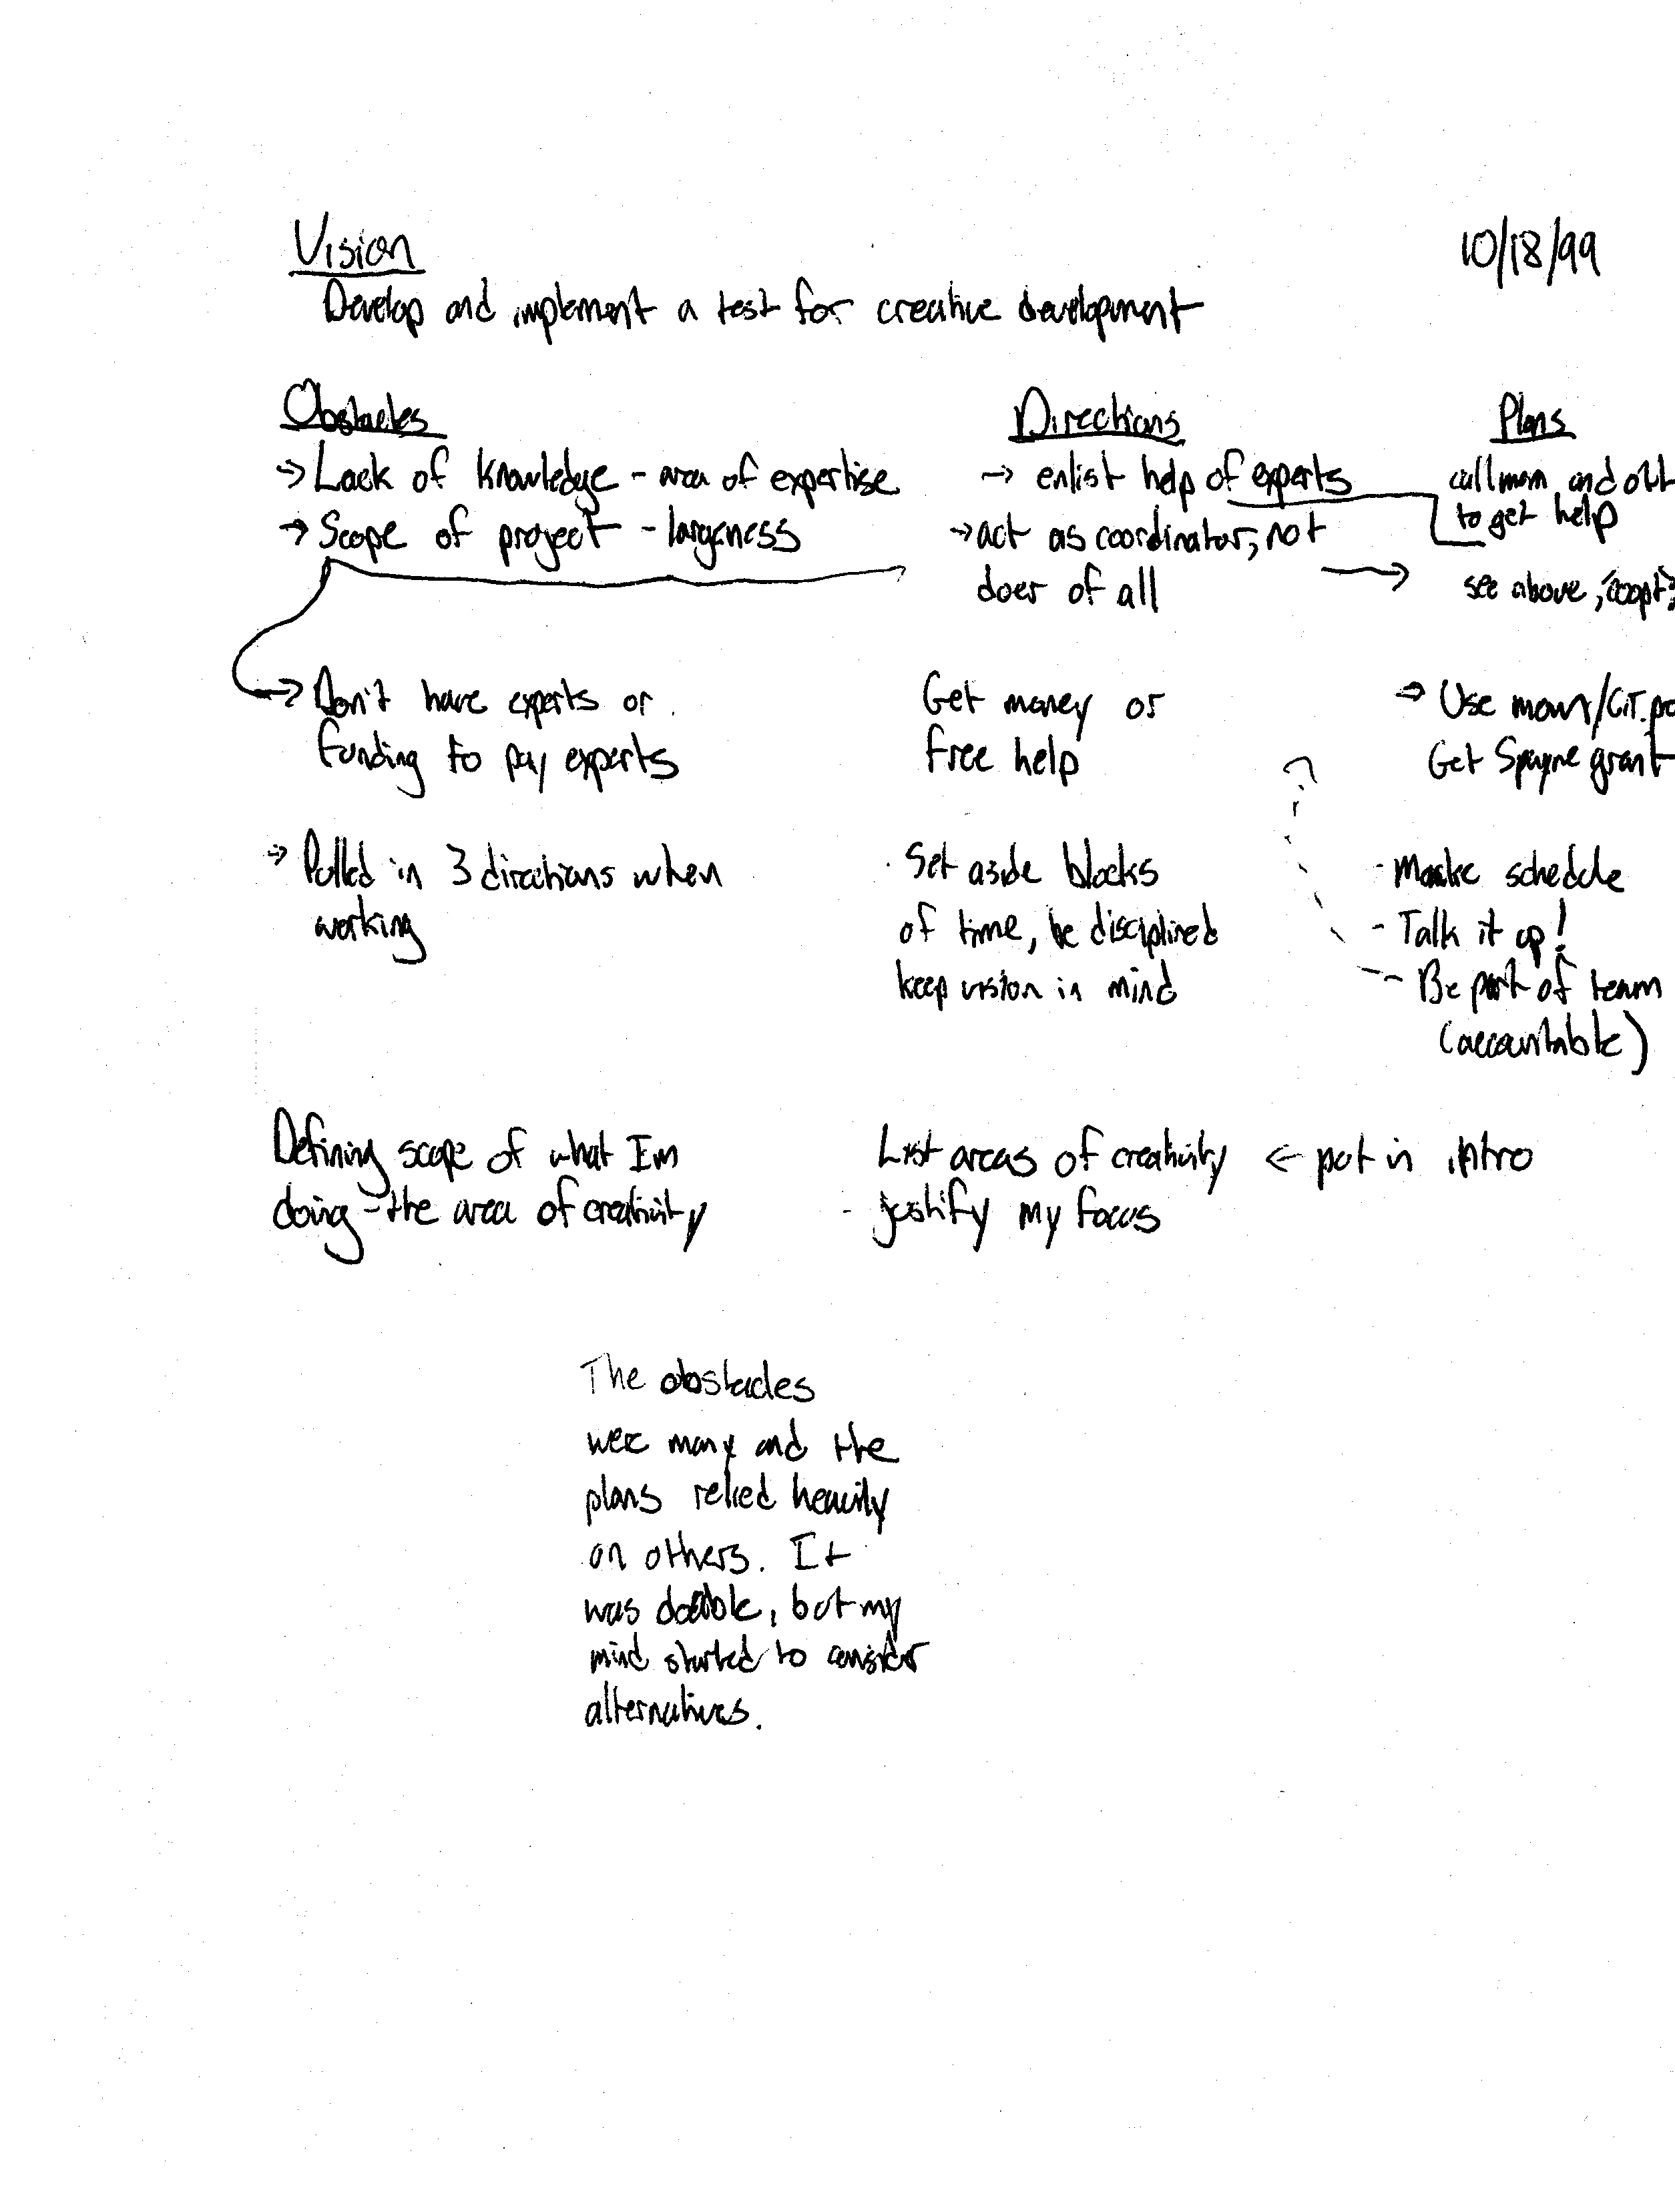 Vision
10/18/99
Develop and implement a test for creative development
Obstacles
→ Lack of knowledge - area of expertise
→ Scope of project - largeness
→ Don't have experts or
funding to pay experts
→ Pulled in 3 directions when
working
Defining scope of what Im
doing - the area of creativity
Directions
→ enlist help of experts
→ act as coordinator, not
doer of all
Get money or
free help
Set aside blocks
of time, be disciplined
keep vision in mind
List areas of creativity ← put in intro
- justify my focus
Plans
call mom and
to get help
see above,
→ Use mom/
Get grant
- Make schedule
- Talk it up!
- Be part of team
(accountable)
The obstacles
were many and the
plans relied heavily
on others. It
was doable, but my
mind started to consider
alternatives.